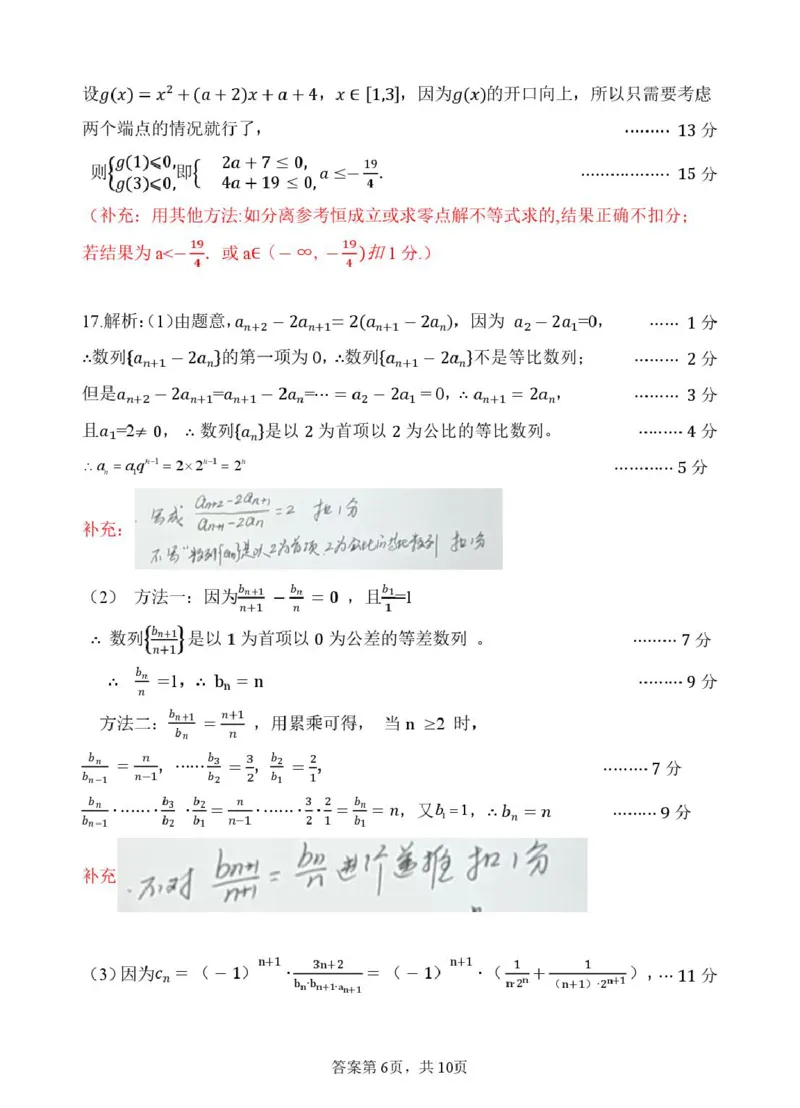 设g(x) = x² + (a + 2)x + a + 4，x ∈ [1,3]，因为g(x)的开口向上，所以只需要考虑
两个端点的情况就行了， ……… 13 分
则{g(1)⩽0, g(3)⩽0, 即{2a + 7 ≤ 0, 4a + 19 ≤ 0, a ≤ −19/4. ……………… 15 分
（补充：用其他方法:如分离参考恒成立或求零点解不等式求的,结果正确不扣分；
若结果为 a<−19/4. 或 a∈（− ∞, −19/4)扣 1 分.）
17.解析：（1）由题意，aₙ₊₂ − 2aₙ₊₁= 2(aₙ₊₁ − 2aₙ)，因为 a₂ − 2a₁=0， …… 1 分
∴数列{aₙ₊₁ − 2aₙ}的第一项为 0，∴数列{aₙ₊₁ − 2aₙ}不是等比数列； ……… 2 分
但是aₙ₊₂ − 2aₙ₊₁=aₙ₊₁ − 2aₙ=⋯ = a₂ − 2a₁ = 0，∴ aₙ₊₁ = 2aₙ， ……… 3 分
且a₁=2≠ 0， ∴ 数列{aₙ}是以 2 为首项以 2 为公比的等比数列。 ……… 4 分
∴ aₙ = a₁qⁿ⁻¹ = 2×2ⁿ⁻¹ = 2ⁿ ………… 5 分
补充：
写成 (aₙ₊₂−2aₙ₊₁)/(aₙ₊₁−2aₙ) =2 扣1分
不写"数列{aₙ}是以2为首项,2为公比的等比数列 扣1分
（2） 方法一：因为bₙ₊₁/(n+1) − bₙ/n = 0 ，且b₁/1=1
∴ 数列{bₙ₊₁/(n+1)}是以 1 为首项以 0 为公差的等差数列 。 ……… 7 分
∴ bₙ/n =1，∴ bₙ = n ……… 9 分
方法二：bₙ₊₁/bₙ = (n+1)/n ，用累乘可得， 当 n ≥2 时，
bₙ/bₙ₋₁ = n/(n−1)，……b₃/b₂ = 3/2，b₂/b₁ = 2/1， ……… 7 分
bₙ/bₙ₋₁·……·b₃/b₂ ·b₂/b₁ = n/(n−1)·……·3/2·2/1 = bₙ/b₁ = n，又b₁=1，∴bₙ = n ……… 9 分
补充
.不对 bₙ₊₁/(n+1) = bₙ/n 进行递推 扣1分
（3）因为cₙ =（− 1）ⁿ⁺¹ · (3n+2)/(bₙ·bₙ₊₁·aₙ₊₁) =（− 1）ⁿ⁺¹ ·（1/(n·2ⁿ) + 1/(（n+1）·2ⁿ⁺¹)），… 11 分
答案第 6页，共 10页